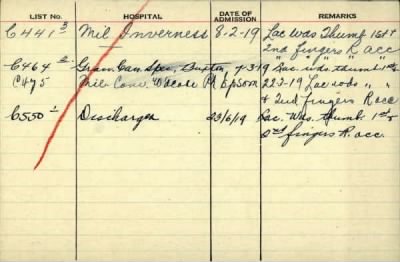 LIST No. HOSPITAL DATE OF ADMISSION REMARKS
C441³ Mil Inverness 8-2-19 Lac was Thumb 1st &
2nd fingers R acc
C464² Gran. Can. Spec. Buxton 4-3-19 " Lac. wds. thumb 1st &
C475 Mil. Conv. Woodcote Pk Epsom 22-3-19 Lac wds " "
& 2nd fingers R acc
C550¹ Discharged 23/6/19 Lac. Was. thumb 1st &
2nd fingers R. acc.